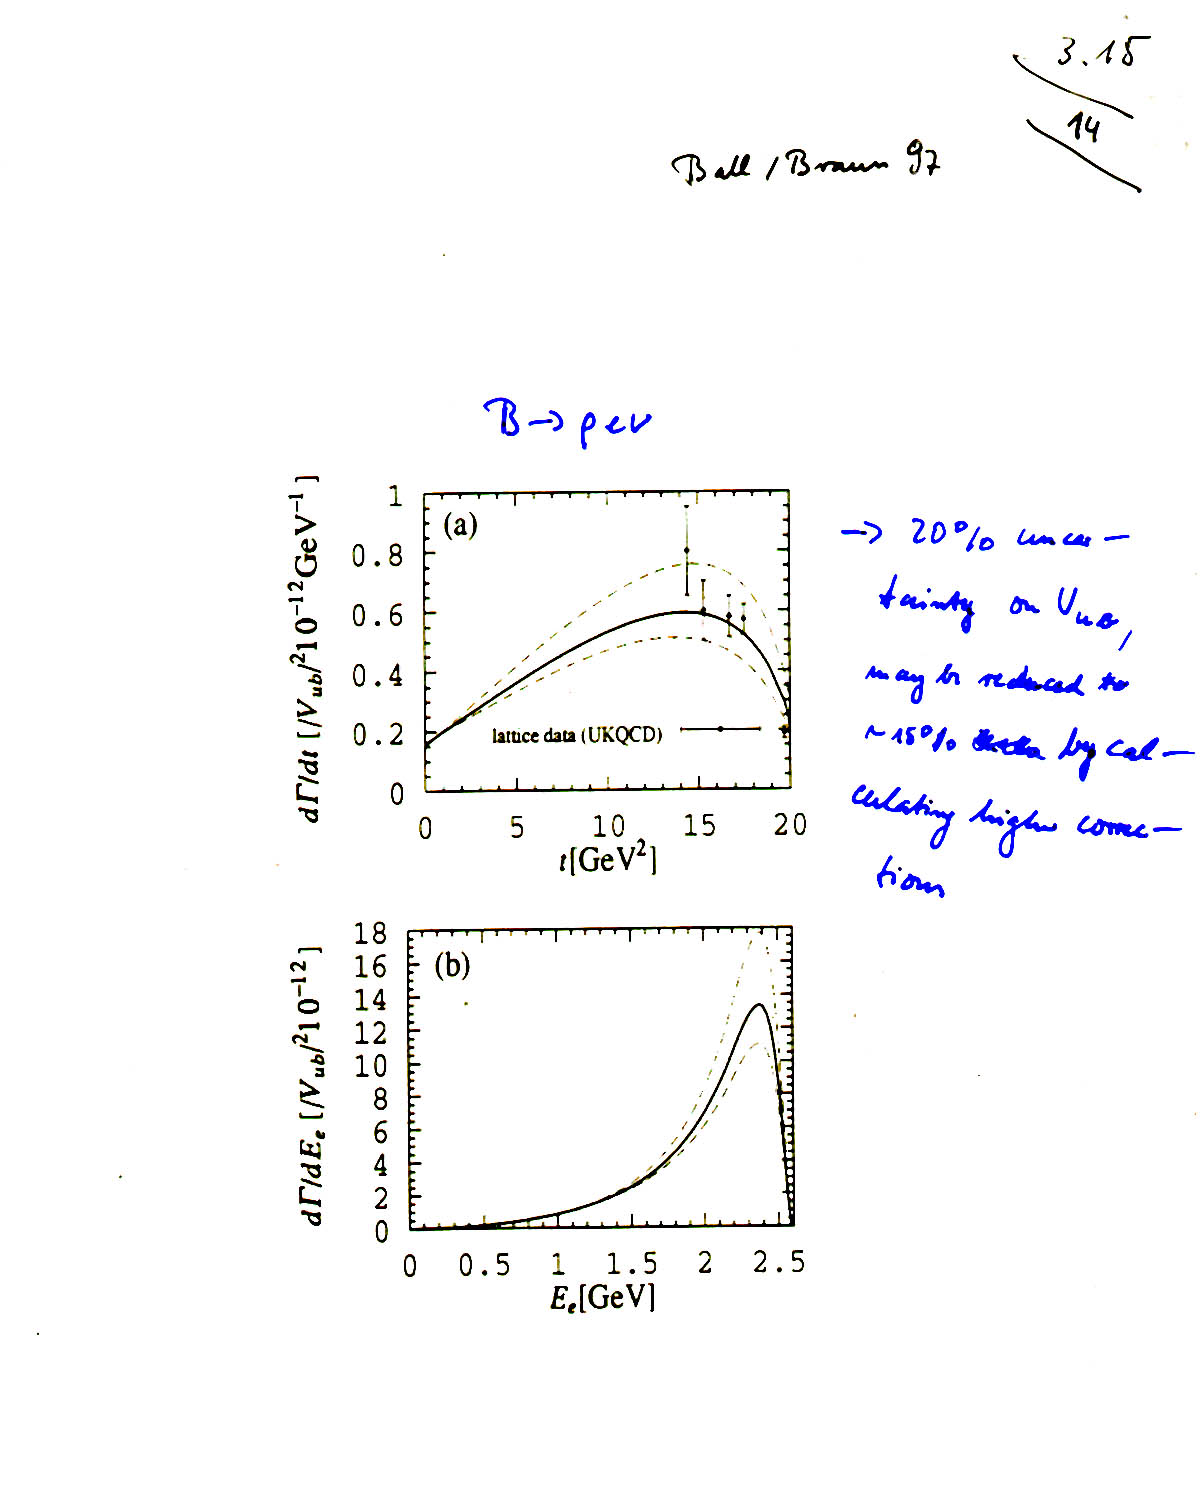 3.15
14
Ball / Braun 97
B → ρ e ν
dΓ/dt [/V_ub/²10⁻¹²GeV⁻¹]
1
0.8
0.6
0.4
0.2
0
(a)
lattice data (UKQCD)
0 5 10 15 20
t[GeV²]
→ 20% uncer-
tainty on V_ub,
may be reduced to
~ 15% by cal-
culating higher correc-
tions
dΓ/dE_e [/V_ub/²10⁻¹²]
18
16
14
12
10
8
6
4
2
0
(b)
0 0.5 1 1.5 2 2.5
E_e[GeV]